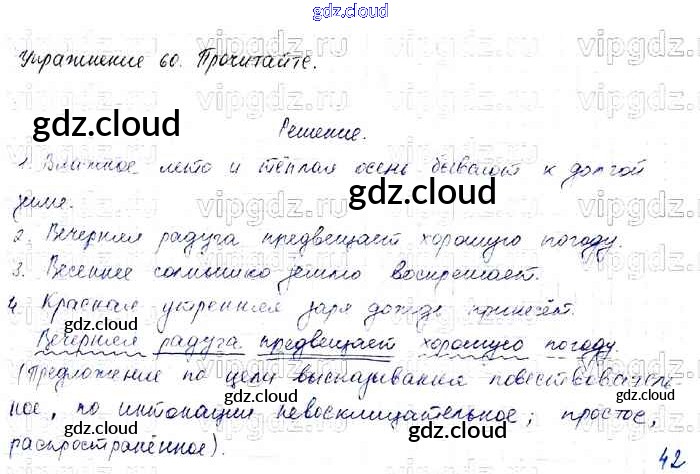 gdz.cloud
vipgdz.ru vipgdz.ru vipgdz.ru
Упражнение 60. Прочитайте.
gdz.cloud
Решение.
1. Влажное лето и тёплая осень бывают к долгой
gdz.cloud
зиме.
2. Вечерняя радуга предвещает хорошую погоду.
3. Весеннее солнышко землю воскрешает.
4. Красная утренняя заря дождь принесёт.
gdz.cloud gdz.cloud gdz.cloud
Вечерняя радуга предвещает хорошую погоду.
(Предложение по цели высказывания повествователь-
ное, по интонации невосклицательное; простое,
распространённое).
42